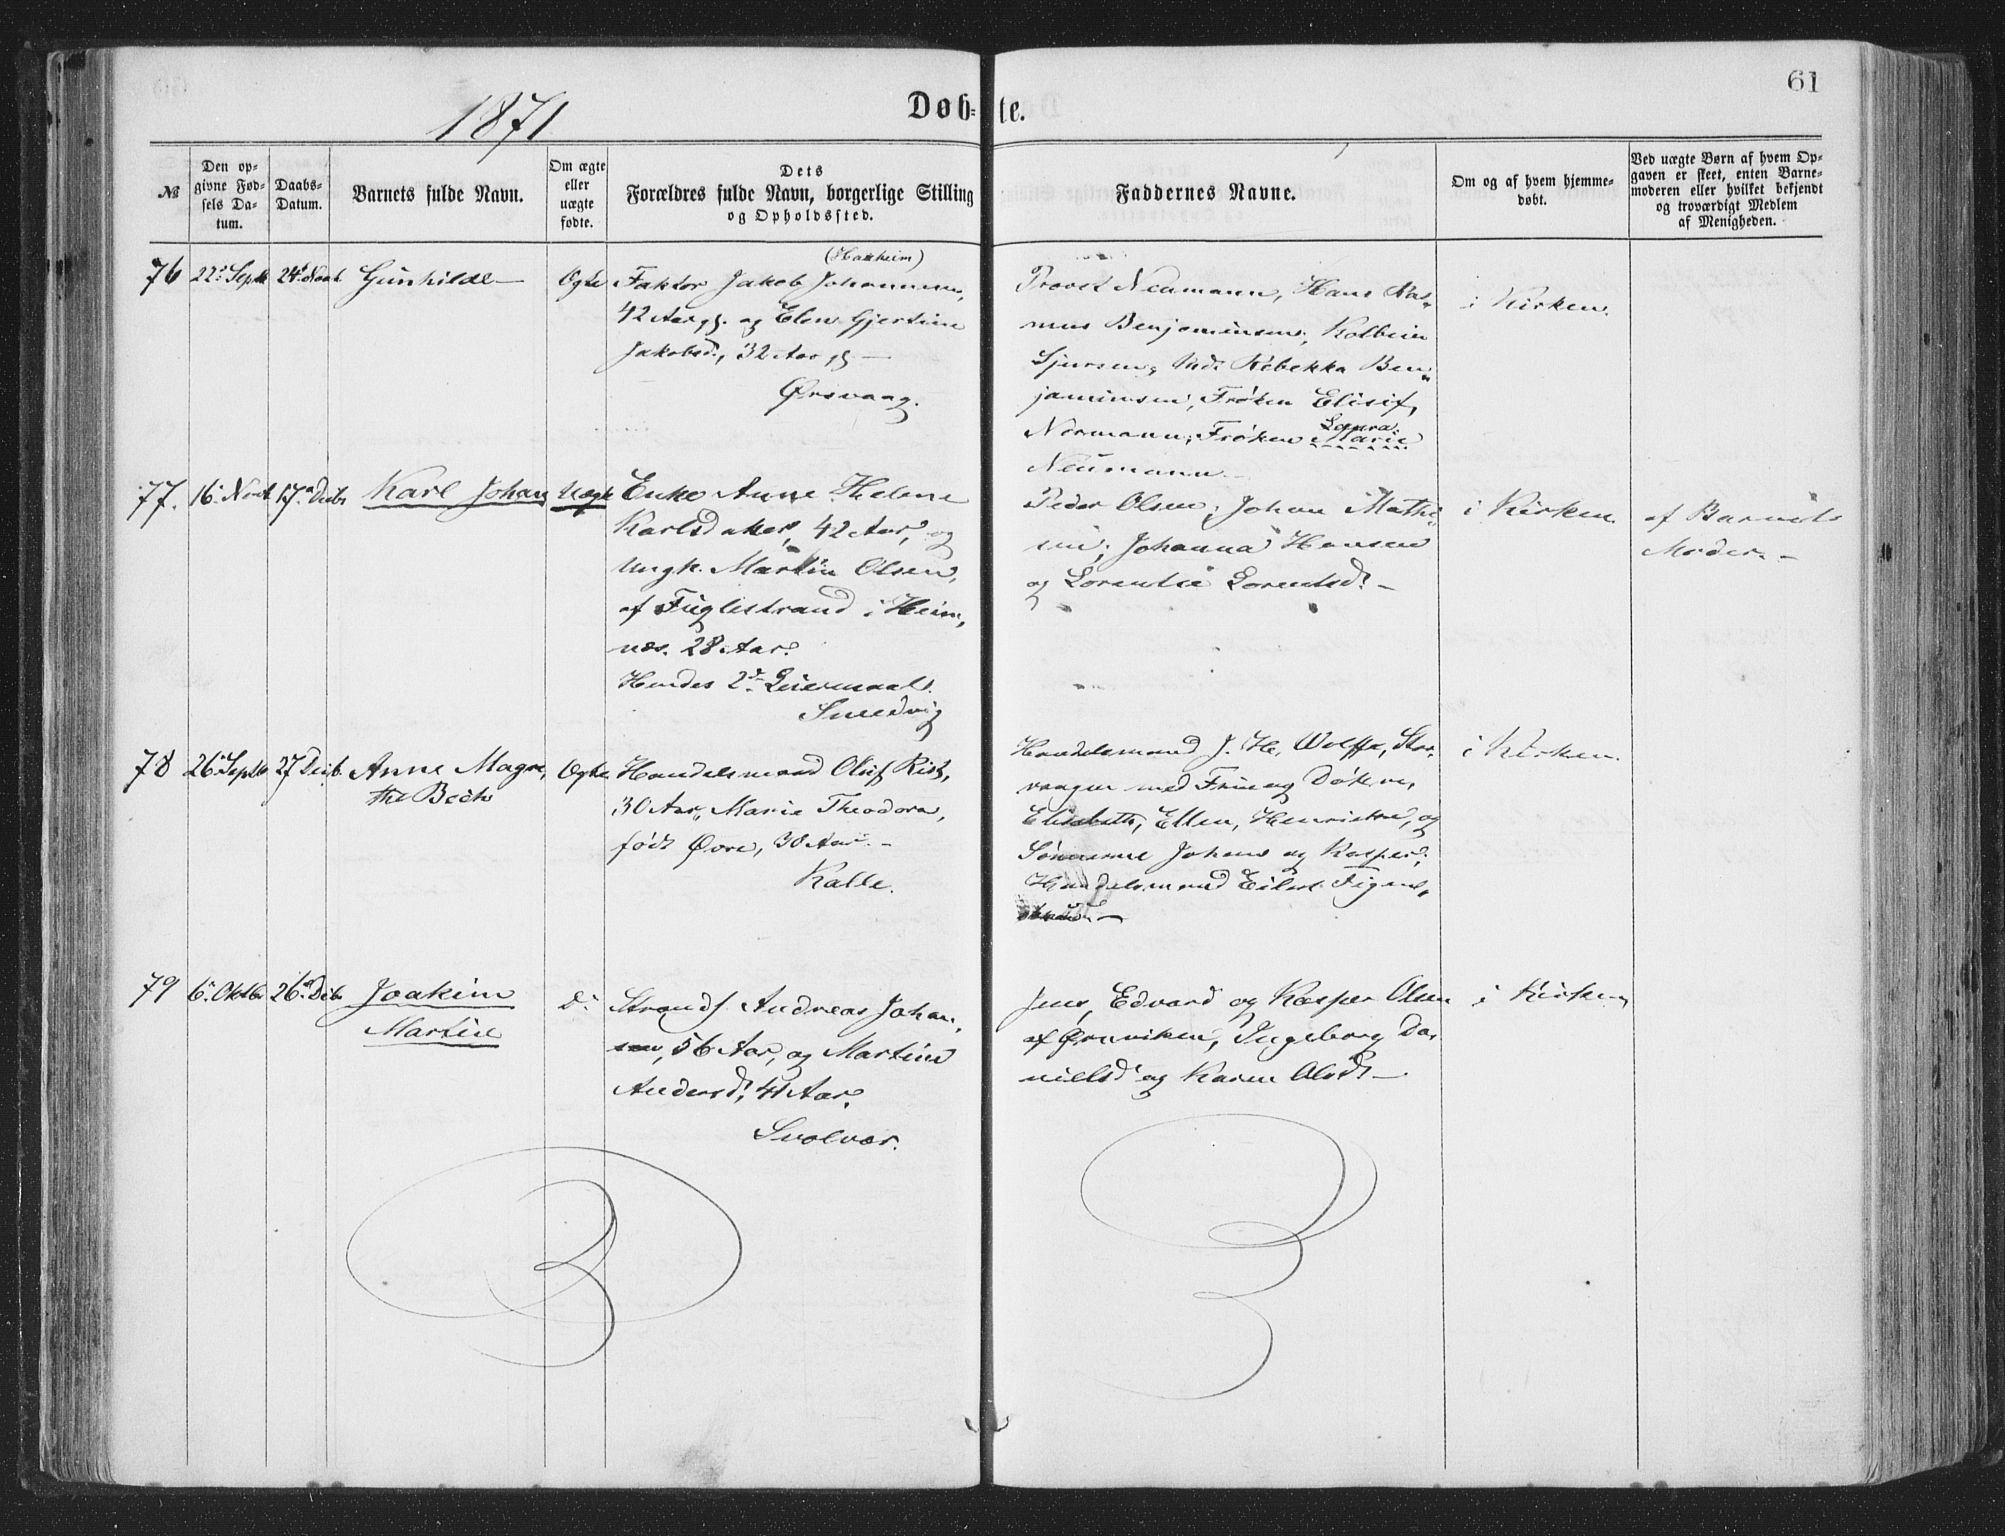 61
1871
Døb-te.
№
Den op-
givne Fød-
sels Da-
tum.
Daabs-
Datum.
Barnets fulde Navn.
Om ægte
eller
uægte
fødte.
Dets
Forældres fulde Navn, borgerlige Stilling
og Opholdssted.
Faddernes Navne.
Om og af hvem hjemme-
døbt.
Ved uægte Børn af hvem Op-
gaven er skeet, enten Barne-
moderen eller hvilket bekjendt
og troværdigt Medlem
af Menigheden.
76
22. Septb
24. Novb
Gunhilde
Ægte
(Hattheim)
Faktor Jakob Johannesen,
42 Aar gl. og Elen Gjertine
Jakobsd., 32 Aar gl.
Ørsvaag.
Provst Neumann, Hans Ras-
mus Benjaminsen, Kolbein
Sjursen, Md. Rebekka Ben-
jaminsen, Frøken Elisif
Normann, Frøken Laura Marie
Neumann
i Kirken.
77.
16. Novb
17. Decbr
Karl Johan
Uægte
Enke Anne Helene
Karlsdatter, 42 Aar, og
Ungk. Martin Olsen,
af Fuglestrand i Hem-
næs. 28 Aar.
Hendes 2d. Leiermaal.
Smedvig
Peder Olsen, Johan Mathi-
sen, Johanna Hansen
og Lorentie Lorentsd.
i Kirken
af Barnets
Moder.
78
26. Septb
27 Decb.
Anne Magre-
the Bech
Ægte
Handelsmand Oluf Rist,
30 Aar, Marie Theodora,
født Øvre, 30 Aar.
Kalle.
Handelsmand J. H. Wolff, Stor-
vaagen med Frue og Døtre,
Elisabeth, Ellen, Henriette, og
Sønnerne Johans og Kasper,
Handelsmand Eilert Figens-
i Kirken.
79
6. Oktbr
26. Decbr
Joakim
Martin
Do
Strands. Andreas Johan-
sen, 56 Aar, og Martine
Andersd., 41 Aar.
Svolvær.
Jens, Edvard og Kasper Olsen
af Ørnviken, Ingeborg Da-
nielsd og Karen Olsd.
i Kirken